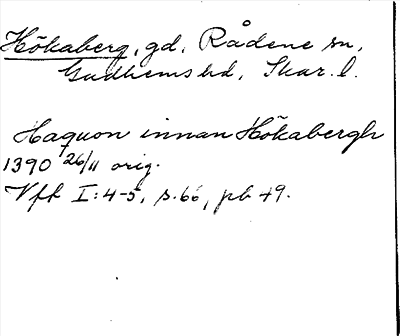 Hökaberg, gd, Rådene sn,
Gudhems hd, Skar. l.
Haquon innan Hökabergh
1390 26/11 orig.
Vfk I:4-5, s. 66, pb 49.